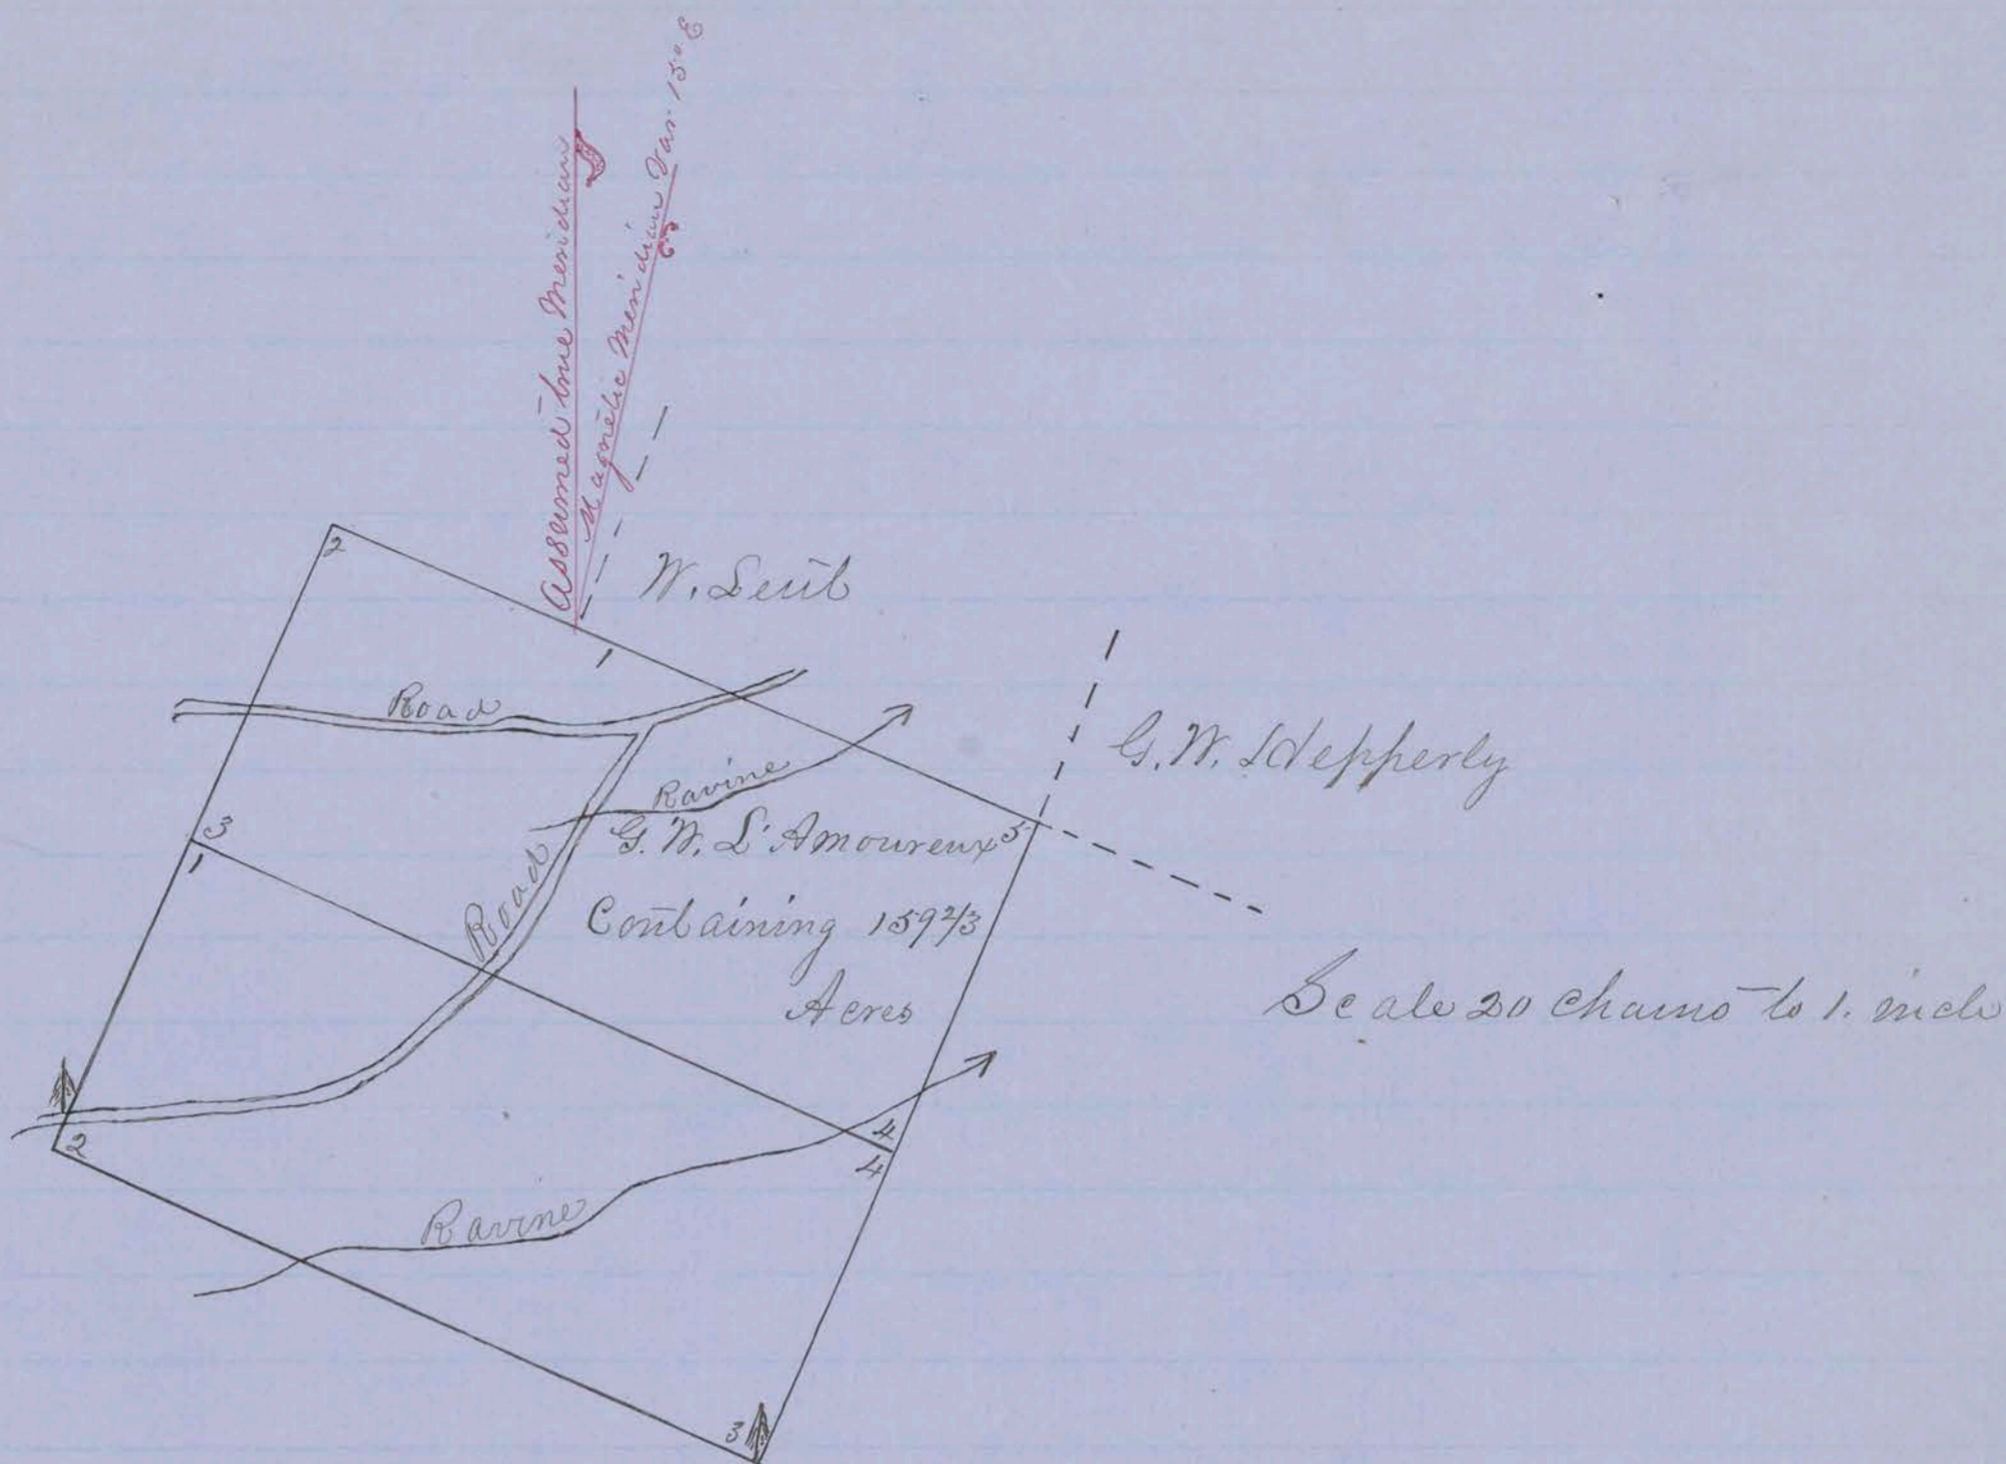 Assumed true Meridian
Magnetic Meridian Var. 15° E
2
W. Leib
1
Road
G. W. Hepperly
Ravine
3
G. W. L'Amoureux
5
1
Road
Containing 159 2/3
Acres
Scale 20 Chains to 1. inch
2
4
4
Ravine
3